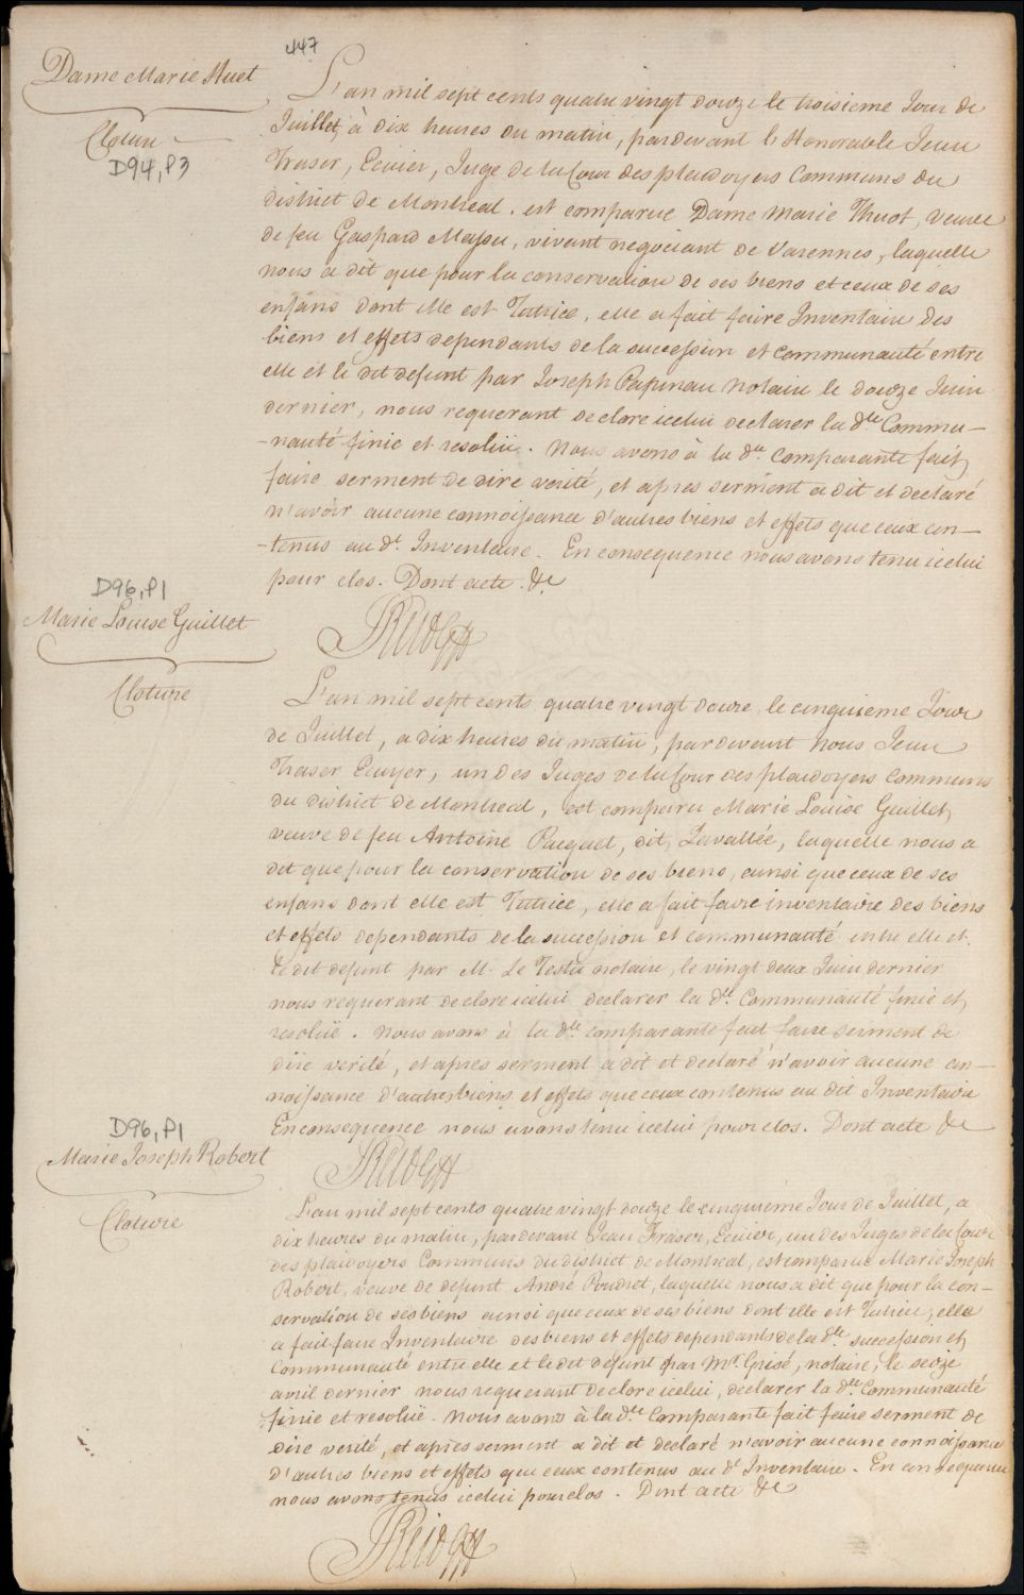 447
Dame Marie Huet
Cloture
D94, P3
L'an mil sept cents quatre vingt douze le troisieme Jour de
Juillet, à dix heures du matin, pardevant l'Honorable Jean
Fraser, Ecuier, Juge de la Cour des plaidoyers Communs du
district de Montreal. est comparue Dame Marie Thuot, veuve
de feu Gaspard Massu, vivant negociant de Varennes, laquelle
nous a dit que pour la conservation de ses biens et ceux de ses
enfans dont elle est Tutrice, elle a fait faire Inventaire des
biens et effets dependants de la succession et communauté entre
elle et le dit defunt par Joseph Papinau Notaire le douze Juin
dernier, nous requerant de clore icelui declarer la dte Commu-
-nauté finie et resolüe. Nous avons à la dte Comparante fait
faire serment de dire verité, et apres serment a dit et declaré
n'avoir aucune connoissance d'autres biens et effets que ceux con-
-tenus au dt Inventaire. En consequence nous avons tenu icelui
pour clos. Dont acte. &c
JReid Gff
D96, P1
Marie Louise Guillet
Cloture
L'an mil sept cents quatre vingt douze le cinquieme Jour
de Juillet, a dix heures du matin, pardevant Nous Jean
Fraser Ecuyer, un des Juges de la Cour des plaidoyers Communs
du district de Montreal, est comparu Marie Louise Guillet,
veuve de feu Antoine Paquet, dit, Lavallée, laquelle nous a
dit que pour la conservation de ses biens, ainsi que ceux de ses
enfans dont elle est Tutrice, elle a fait faire inventaire des biens
et effets dependants de la succession et communauté entre elle et
le dit defunt par M. Le Testu notaire, le vingt deux Juin dernier
nous requerant de clore icelui declarer la dte Communauté finie et
resolüe. Nous avons à la dte comparante fait faire serment de
dire verité, et apres serment a dit et declaré n'avoir aucune con-
noissance d'autres biens et effets que ceux contenus au dit Inventaire
En consequence nous avons tenu icelui pour clos. Dont acte &c
JReid Gff
D96, P1
Marie Joseph Robert
Cloture
L'an mil sept cents quatre vingt douze le cinquieme Jour de Juillet, a
dix heures du matin, pardevant Jean Fraser, Ecuier, un des Juges de la Cour
des plaidoyers Communs du district de Montreal, est comparue Marie Joseph
Robert, veuve de defunt André Poudret, laquelle nous a dit que pour la con-
servation de ses biens ainsi que ceux de ses biens dont elle est Tutrice, elle
a fait faire Inventaire des biens et effets dependants de la dte succession et
Communauté entre elle et le dit défunt par Mr Grisé, notaire, le seize
avril dernier nous requerant de clore icelui, declarer la dte Communauté
finie et resolüe. Nous avons à la dte Comparante fait faire serment de
dire verité, et apres serment a dit et declaré n'avoir aucune connoissance
d'autres biens et effets que ceux contenus au dt Inventaire. En consequence
nous avons tenus icelui pour clos. Dont acte &c
JReid Gff